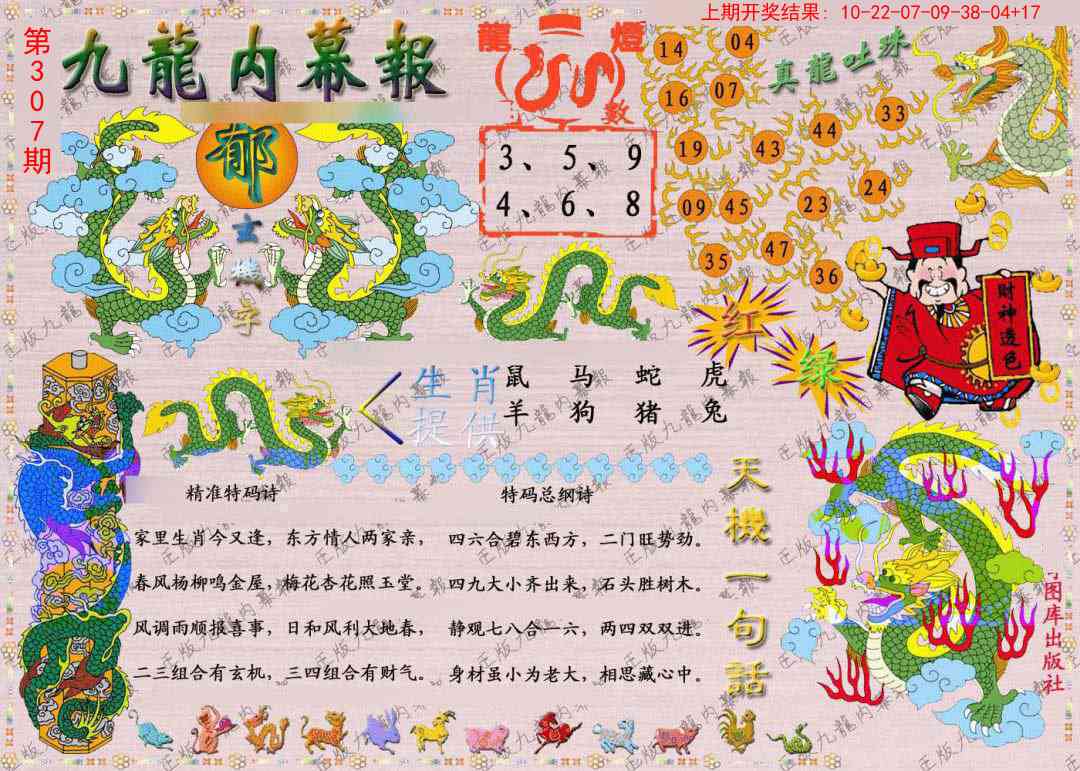 上期开奖结果：10-22-07-09-38-04+17
第307期
九龍内幕報
龍 燈
數
3、5、9
4、6、8
14 04
16 07
19 43 44 33
09 45 23 24
35 47 36
真龍吐珠
郁
玄
機
字
财神造色
红
绿
生肖
提供
鼠 马 蛇 虎
羊 狗 猪 兔
精准特码诗
家里生肖今又逢，东方情人两家亲，
春风杨柳鸣金屋，梅花杏花照玉堂。
风调雨顺报喜事，日和风利大地春，
二三组合有玄机，三四组合有财气。
特码总纲诗
四六合碧东西方，二门旺势劲。
四九大小齐出来，石头胜树木。
静观七八合一六，两四双双进。
身材虽小为老大，相思藏心中。
天機一句話
图库出版社
正版九龍内幕報